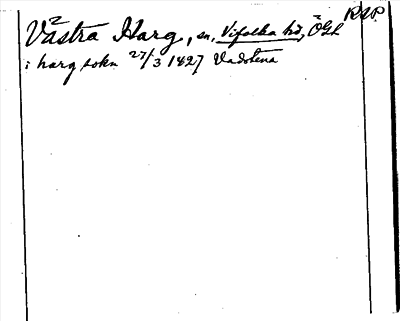 Västra Harg, sn, Vifolka hd, ÖGL RAP.
i harg sokn 27/3 1427 Vadstena